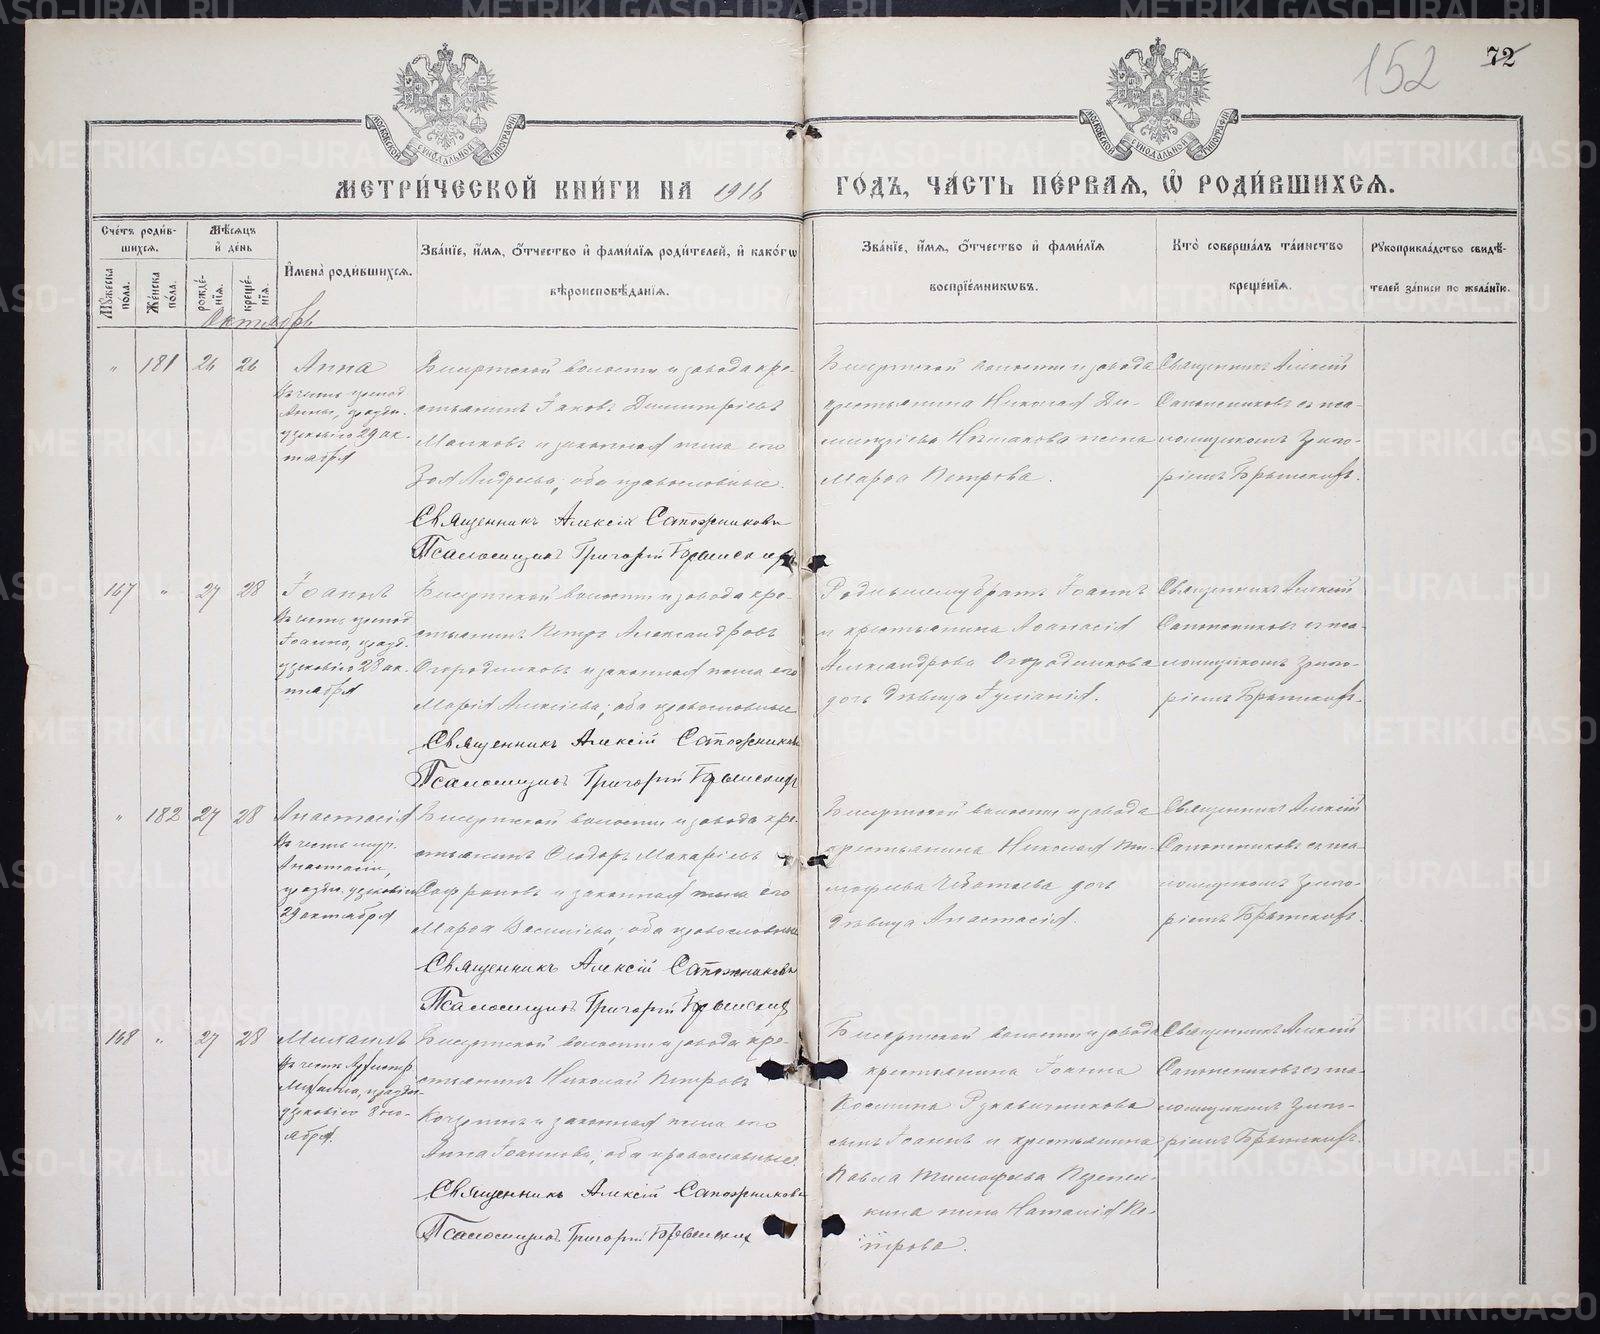 152
72
МОСКОВСКОЙ СУНОДАЛЬНОЙ ТИПОГРАФИИ
МОСКОВСКОЙ СУНОДАЛЬНОЙ ТИПОГРАФИИ
МЕТРИ́ЧЕСКОЙ КНИ́ГИ НА 1916
ГО́ДЪ, ЧА́СТЬ ПЕ́РВАѦ, Ѽ РОДИ́ВШИХСѦ.
Сче́тъ роди́в-
шихсѧ.
Мꙋ́жеска пола.
Же́нска по́ла.
Мѣ́сѧцъ
и҆ де́нь
рожде́-
нїѧ.
креще́-
нїѧ.
И҆мена̀ роди́вшихсѧ.
Зва́нїе, и҆́мѧ, ѻ҆́тчество и҆ фами́лїѧ роди́телей, и҆ како́гѡ
вѣроисповѣ́данїѧ.
Зва́нїе, и҆́мѧ, ѻ҆́тчество и҆ фами́лїѧ
воспрїе́мникѡвъ.
Кто̀ соверша́лъ та́инство
креще́нїѧ.
Рꙋкоприкла́дство свидѣ́-
телей за́писи по жела́нїю.
Октябрь
" 181 26 26 Анна
Въ честь препод.
Анны, праздн.
29 ок-
тября
Бисертской волости и завода кре-
стьянинъ Іаковъ Димитріевъ
и законная жена его
Зоя Андреева, оба православные.
Священникъ Алексій Сапожниковъ
Псаломщикъ Григорій
Бисертской волости и завода
крестьянина Николая Ди-
митріева жена
Марѳа Петрова.
Священникъ Алексій
Сапожниковъ съ пса-
ломщикомъ Григо-
ріемъ
167 " 27 28 Іоаннъ
Въ честь препод.
Іоанна, празд.
28 ок-
тября
Бисертской волости и завода кре-
стьянинъ Петръ Александровъ
Огородниковъ и законная жена его
Марія Алексіева, оба православные
Священникъ Алексій Сапожниковъ
Псаломщикъ Григорій
братъ Іоаннъ
и крестьянина Аѳанасія
Александрова Огородникова
дочь дѣвица Іуліанія.
Священникъ Алексій
Сапожниковъ съ пса-
ломщикомъ Григо-
ріемъ
" 182 27 28 Анастасія
Въ честь муч.
Анастасіи,
29 октября
Бисертской волости и завода кре-
стьянинъ Ѳеодоръ Макаріевъ
Сафроновъ и законная жена его
Марѳа Василіева, оба православные
Священникъ Алексій Сапожниковъ
Псаломщикъ Григорій
Бисертской волости и завода
крестьянина Николая Ти-
моѳеева дочь
дѣвица Анастасія.
Священникъ Алексій
Сапожниковъ съ пса-
ломщикомъ Григо-
ріемъ
168 " 27 28 Михаилъ
Въ честь Архистр.
Михаила, праздн.
8 но-
ября.
Бисертской волости и завода кре-
стьянинъ Николай Петровъ
и законная жена его
Анна Іоаннова, оба православные.
Священникъ Алексій Сапожниковъ
Псаломщикъ Григорій
Бисертской волости и завода
крестьянина Іоанна
Космина Рукавичникова
сынъ Іоаннъ и крестьянина
Павла Тимоѳеева Перепел-
кина жена Наталія Пе-
трова.
Священникъ Алексій
Сапожниковъ съ пса-
ломщикомъ Григо-
ріемъ
METRIKI.GASO-URAL.RU